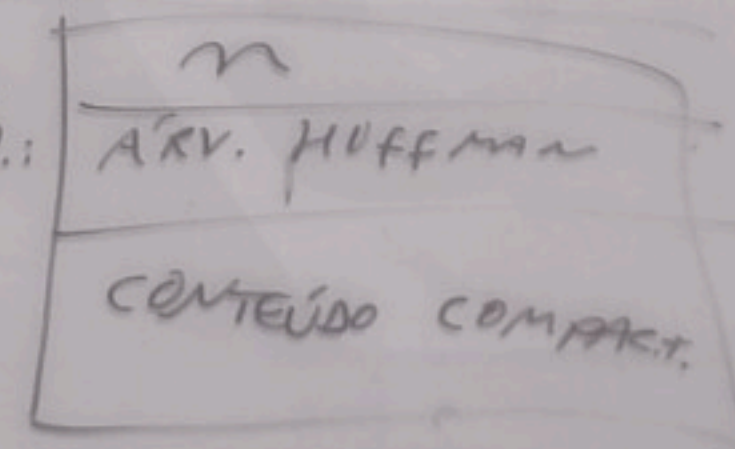 n
.:
ÁRV. HUFFMAN
CONTEÚDO COMPACT.